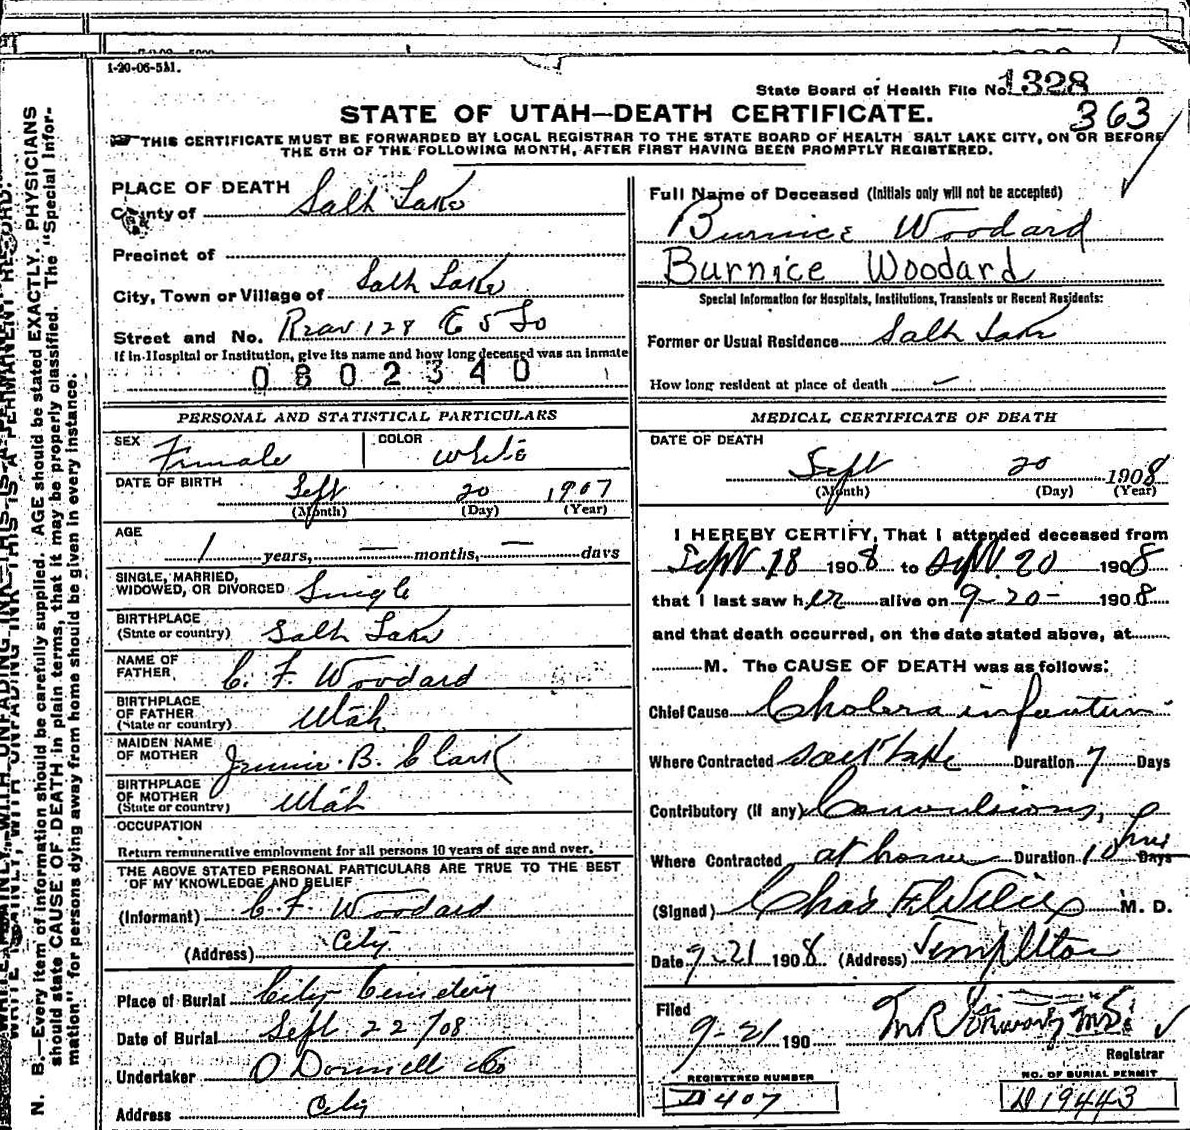 1-20-06-5M.
State Board of Health File No. 1328
363
STATE OF UTAH—DEATH CERTIFICATE.
THIS CERTIFICATE MUST BE FORWARDED BY LOCAL REGISTRAR TO THE STATE BOARD OF HEALTH SALT LAKE CITY, ON OR BEFORE
THE 5TH OF THE FOLLOWING MONTH, AFTER FIRST HAVING BEEN PROMPTLY REGISTERED.
PLACE OF DEATH
County of Salt Lake
Precinct of
City, Town or Village of Salt Lake
Street and No. Rear 128 E 5 So
If in Hospital or Institution, give its name and how long deceased was an inmate
0802340
PERSONAL AND STATISTICAL PARTICULARS
SEX Female COLOR White
DATE OF BIRTH Sept 20 1907
(Month) (Day) (Year)
AGE
1 years, — months, — days
SINGLE, MARRIED,
WIDOWED, OR DIVORCED Single
BIRTHPLACE
(State or country) Salt Lake
NAME OF
FATHER C. F. Woodard
BIRTHPLACE
OF FATHER
(State or country) Utah
MAIDEN NAME
OF MOTHER Jennie B. Clark
BIRTHPLACE
OF MOTHER
(State or country) Utah
OCCUPATION
Return remunerative employment for all persons 10 years of age and over.
THE ABOVE STATED PERSONAL PARTICULARS ARE TRUE TO THE BEST
OF MY KNOWLEDGE AND BELIEF
(Informant) C. F. Woodard
(Address) City
Place of Burial City Cemetery
Date of Burial Sept 22/08
Undertaker O Donnell & Co
Address City
Full Name of Deceased (Initials only will not be accepted)
Burnice Woodard
Burnice Woodard
Special Information for Hospitals, Institutions, Transients or Recent Residents:
Former or Usual Residence Salt Lake
How long resident at place of death —
MEDICAL CERTIFICATE OF DEATH
DATE OF DEATH
Sept 20 1908
(Month) (Day) (Year)
I HEREBY CERTIFY, That I attended deceased from
Sept. 18 1908 to Sept. 20 1908
that I last saw her alive on 9-20- 1908
and that death occurred, on the date stated above, at
M. The CAUSE OF DEATH was as follows:
Chief Cause Cholera infantum
Where Contracted Salt Lake Duration 7 Days
Contributory (if any) Convulsions,
Where Contracted at home Duration 10 hrs Days
(Signed) Chas F. Wilcox M. D.
Date 9-21 1908 (Address) Templeton
Filed
9-21 190
Registrar
REGISTERED NUMBER
D 407
NO. OF BURIAL PERMIT
D 19443
N. B.—Every item of information should be carefully supplied. AGE should be stated EXACTLY. PHYSICIANS
should state CAUSE OF DEATH in plain terms, that it may be properly classified. The "Special Infor-
mation" for persons dying away from home should be given in every instance.